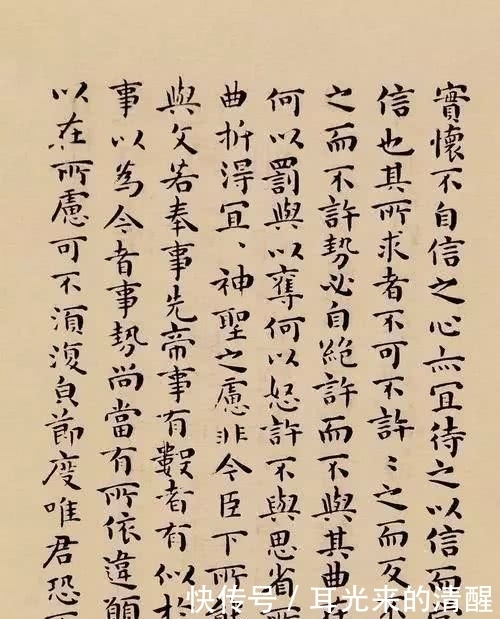 實懷不自信之心亦冝待之以信而
信也其所求者不可不許〻之而反
之而不許勢必自絕許而不與其曲在
何以罰與以奪何以怒許不與思省所
曲折得冝〻神聖之慮非今臣下所能
與文若奉事先帝事有數者有似於
事以為今者事勢尚當有所依違願
以在所慮可不須復皃節度唯君恐不
快传号 / 耳光来的清醒